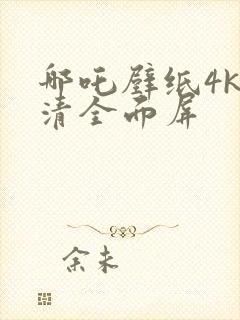 哪吒壁纸4K
清全面屏
余未